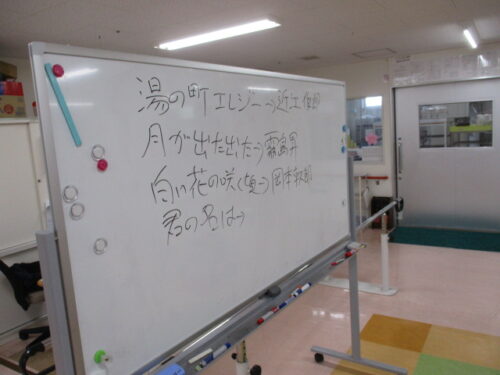 湯の町エレジー→近江俊郎
月が出た出た→霧島昇
白い花の咲く頃→岡本敦郎
君の名は→